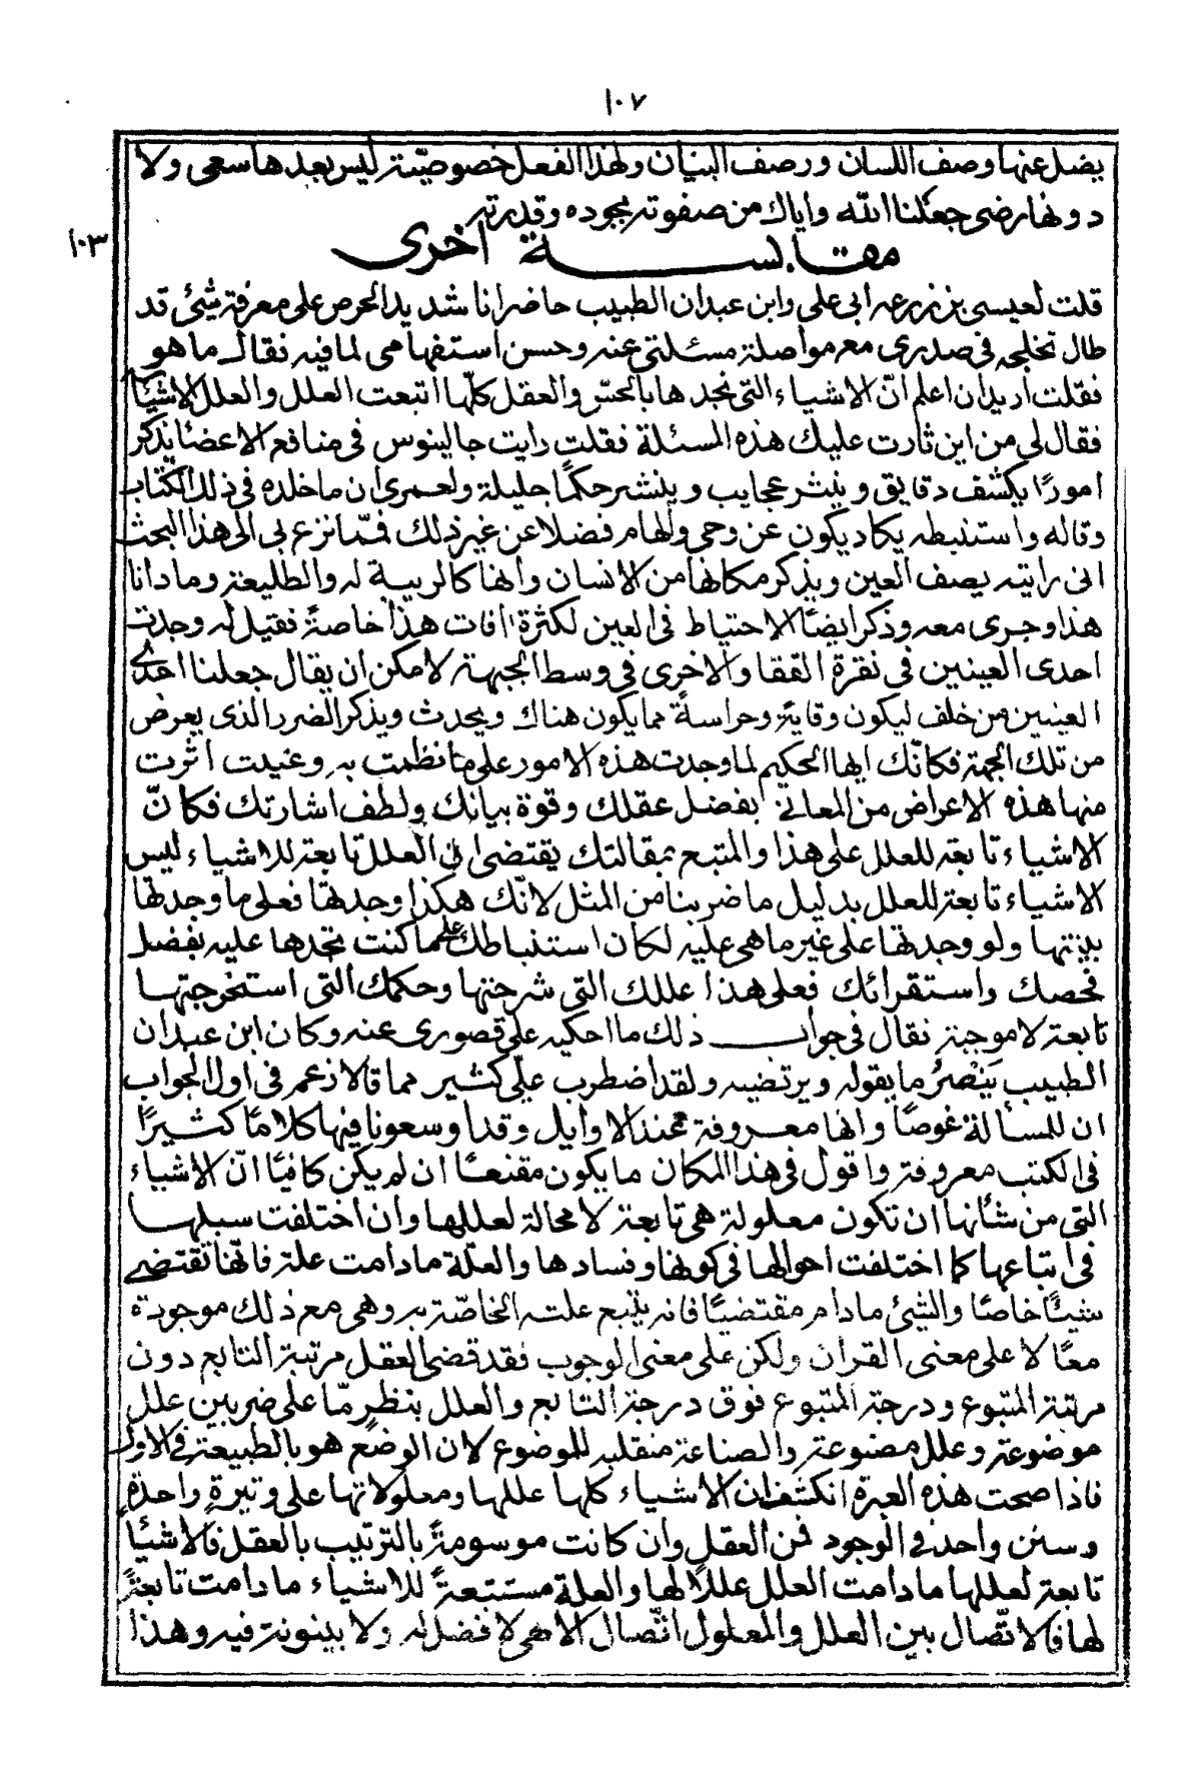 ١٠٧
يضل عنها وصف اللسان ورصف البنيان ولهذا الفعل خصوصيّة ليس بعدها سعى ولا
دونها رضى جعلنا الله واياك من صفوته بجوده وقدرته
١٠٣
مقابسة اخرى
قلت لعيسى بن زرعه ابى على وابن عبدان الطبيب حاضر انا شديد الحرص على معرفة شئ قد
طال تخلجه فى صدرى مع مواصلة مسئلتى عنه وحسن استفهامى لما فيه فقال ما هو
فقلت اريد ان اعلم انّ الاشياء التى نجدها بالحسّ والعقل كلّها اتبعت العلل والعلل الاشياء
فقال لى من اين ثارت عليك هذه المسئلة فقلت رايت جالينوس فى منافع الاعضا يذكر
امورًا يكشف دقايق وينثر عجايب وينشر حكمًا جليلة ولعمرى ان ما خلده فى ذلك الكتاب
وقاله واستنبطه يكاد يكون عن وحى والهام فضلا عن غير ذلك فمّا نزع بى الى هذا البحث
انى رايته يصف العين ويذكر مكانها من الانسان وانها كالربية له والطليعة وما دانا
هذا وجرى معه وذكر ايضًا الاحتياط فى العين لكثرة افات هذا خاصةً فقيل له وجدت
احدى العينين فى نقرة القفا والاخرى فى وسط الجبهة لامكن ان يقال جعلنا احدى
العينين من خلف ليكون وقايةً وحراسةً مما يكون هناك ويحدث ويذكر الضرر الذى يعرض
من تلك الجهة فكانّك ايها الحكيم لما وجدت هذه الامور على ما نظمت به وعنيت اثرت
منها هذه الاعراض من المعانى بفضل عقلك وقوة بيانك ولطف اشارتك فكانّ
الاشياء تابعة للعلل على هذا والمتبع بمقالتك يقتضى انّ العلل تابعة للاشياء ليس
الاشياء تابعة للعلل بدليل ما ضربنا من المثل لانّك هكذا وجدتها فعلى ما وجدتها
بينتها ولو وجدتها على غير ما هى عليه لكان استنباطك على ما كنت تجدها عليه بفضل
فحصك واستقرائك فعلى هذا عللك التى شرحتها وحكمك التى استخرجتها
تابعة لا موجبة فقال فى جواب ذلك ما احكيه على قصورى عنه وكان ابن عبدان
الطبيب يَنْصُرُ ما يقوله ويرتضيه ولقد اضطرب علىّ كثير مما قالا زعم فى اول الجواب
ان للمسألة غوصًا وانها معروفة عند الاوايل وقد اوسعونا فيها كلامًا كثيرًا
فى الكتب معروفة واقول فى هذا المكان ما يكون مقنعًا ان لم يكن كافيًا انّ الاشياء
التى من شأنها ان تكون معلولة هى تابعة لا محالة لعللها وان اختلفت سبلها
فى اتباعها كما اختلفت احوالها فى كونها وفسادها والعلّة ما دامت علة فانّها تقتضى
شيئًا خاصًا والشئ ما دام مقتضيًا فانه يتبع علته الخاصّة به وهى مع ذلك موجودة
معًا لا على معنى القران ولكن على معنى الوجوب فقد قضى العقل مرتبة التابع دون
مرتبة المتبوع ودرجة المتبوع فوق درجة التابع والعلل بنظرٍ مّا على ضربين علل
موضوعة وعلل مصنوعة والصناعة منقلبه للموضوع لان الوضع هو بالطبيعة فى الاول
فاذا صحت هذه العبرة انكشف ان الاشياء كلها عللها ومعلولاتها على وتيرةٍ واحدةٍ
وسنن واحد فى الوجود فمن العقل وان كانت موسومةً بالترتيب بالعقل فالاشيأ
تابعة لعللها ما دامت العلل عللًا لها والعلة مستتبعةً للاشياء ما دامت تابعةً
لها فالاتّصال بين العلل والمعلول اتّصال الاهى لا فضل له ولا بينونة فيه وهذا